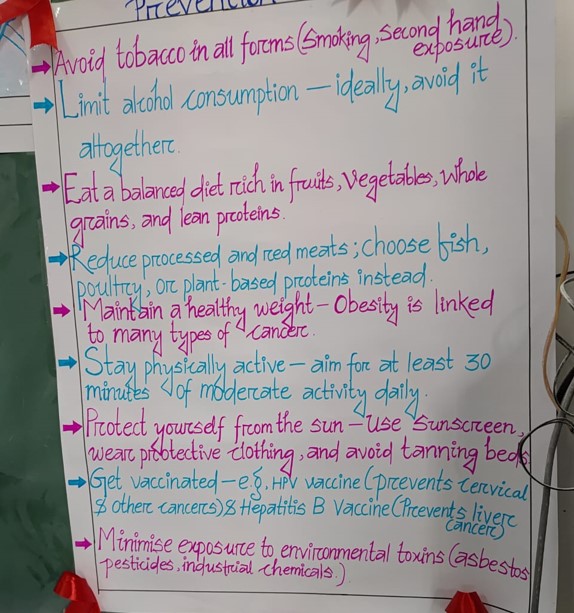 Prevention
→Avoid tobacco in all forms (smoking, second hand
exposure).
→Limit alcohol consumption – ideally, avoid it
altogether.
→Eat a balanced diet rich in fruits, vegetables, whole
grains, and lean proteins.
→Reduce processed and red meats; choose fish,
poultry, or plant-based proteins instead.
→Maintain a healthy weight – Obesity is linked
to many types of cancer.
→Stay physically active – aim for at least 30
minutes of moderate activity daily.
→Protect yourself from the sun – Use sunscreen,
wear protective clothing, and avoid tanning beds
→Get vaccinated – e.g, HPV vaccine (prevents cervical
& other cancers) & Hepatitis B Vaccine (Prevents liver
cancer)
→Minimise exposure to environmental toxins (asbestos
pesticides, industrial chemicals.)